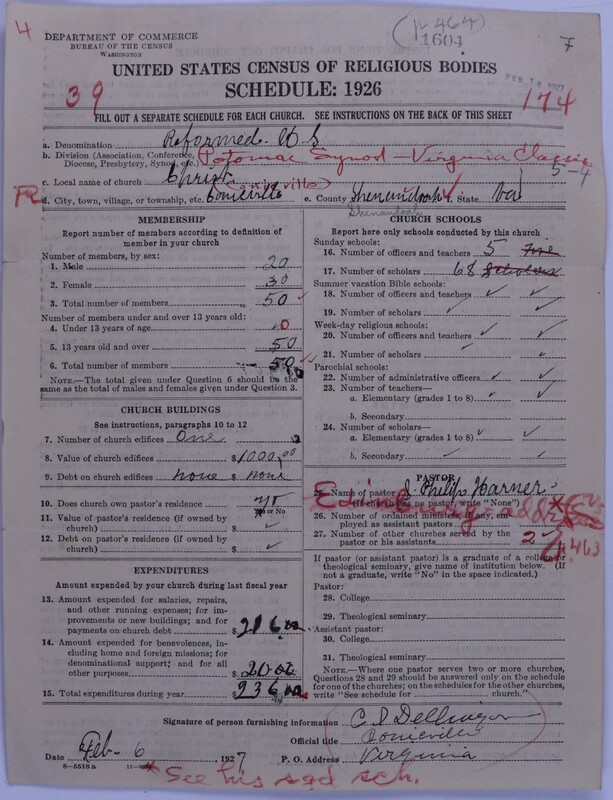 4
(12464)
1604
7
DEPARTMENT OF COMMERCE
BUREAU OF THE CENSUS
WASHINGTON
UNITED STATES CENSUS OF RELIGIOUS BODIES
SCHEDULE: 1926
39
FEB 1927
174
FILL OUT A SEPARATE SCHEDULE FOR EACH CHURCH. SEE INSTRUCTIONS ON THE BACK OF THIS SHEET
a. Denomination Reformed U S
b. Division (Association, Conference, Diocese, Presbytery, Synod, etc.) Potomac Synod - Virginia Classis
5-4
c. Local name of church Christ
(Conicville)
d. City, town, village, or township, etc. Conicville e. County Shenandoah f. State Va
Shenandoah
MEMBERSHIP
Report number of members according to definition of
member in your church
Number of members, by sex:
1. Male 20
2. Female 30
3. Total number of members 50
Number of members under and over 13 years old:
4. Under 13 years of age 0
5. 13 years old and over 50
6. Total number of members 50
NOTE.—The total given under Question 6 should be the
same as the total of males and females given under Question 3.
CHURCH BUILDINGS
See instructions, paragraphs 10 to 12
7. Number of church edifices One
8. Value of church edifices $ 1000.00
9. Debt on church edifices none $ none
10. Does church own pastor's residence no
Yes or No
11. Value of pastor's residence (if owned by
church) $ ✓
12. Debt on pastor's residence (if owned by
church) $ ✓
EXPENDITURES
Amount expended by your church during last fiscal year
13. Amount expended for salaries, repairs,
and other running expenses; for im-
provements or new buildings; and for
payments on church debt $ 216.00
14. Amount expended for benevolences,
including home and foreign missions; for
denominational support; and for all
other purposes $ 20.00
15. Total expenditures during year $ 236.00
CHURCH SCHOOLS
Report here only schools conducted by this church
Sunday schools:
16. Number of officers and teachers 5 Five
17. Number of scholars 68 Scholars
Summer vacation Bible schools:
18. Number of officers and teachers ✓ ✓
19. Number of scholars ✓ ✓
Week-day religious schools:
20. Number of officers and teachers ✓ ✓
21. Number of scholars ✓ ✓
Parochial schools:
22. Number of administrative officers ✓ ✓
23. Number of teachers—
a. Elementary (grades 1 to 8) ✓ ✓
b. Secondary
24. Number of scholars—
a. Elementary (grades 1 to 8) ✓ ✓
b. Secondary ✓ ✓
PASTOR
25. Name of pastor J Philip Harner
(If church has no pastor, write "None")
26. Number of ordained ministers, if any, em-
ployed as assistant pastors
27. Number of other churches served by the
pastor or his assistants 2
If pastor (or assistant pastor) is a graduate of a college or
theological seminary, give name of institution below. (If
not a graduate, write "No" in the space indicated.)
Pastor:
28. College
29. Theological seminary
Assistant pastor:
30. College
31. Theological seminary
NOTE.—Where one pastor serves two or more churches,
Questions 28 and 29 should be answered only on the schedule
for one of the churches; on the schedules for the other churches,
write "See schedule for ........ church."
Signature of person furnishing information C. S. Dellinger
Official title Conicville
Date Feb- 6 1927 P. O. Address Virginia
8—5518 a
* See his sqd sch.